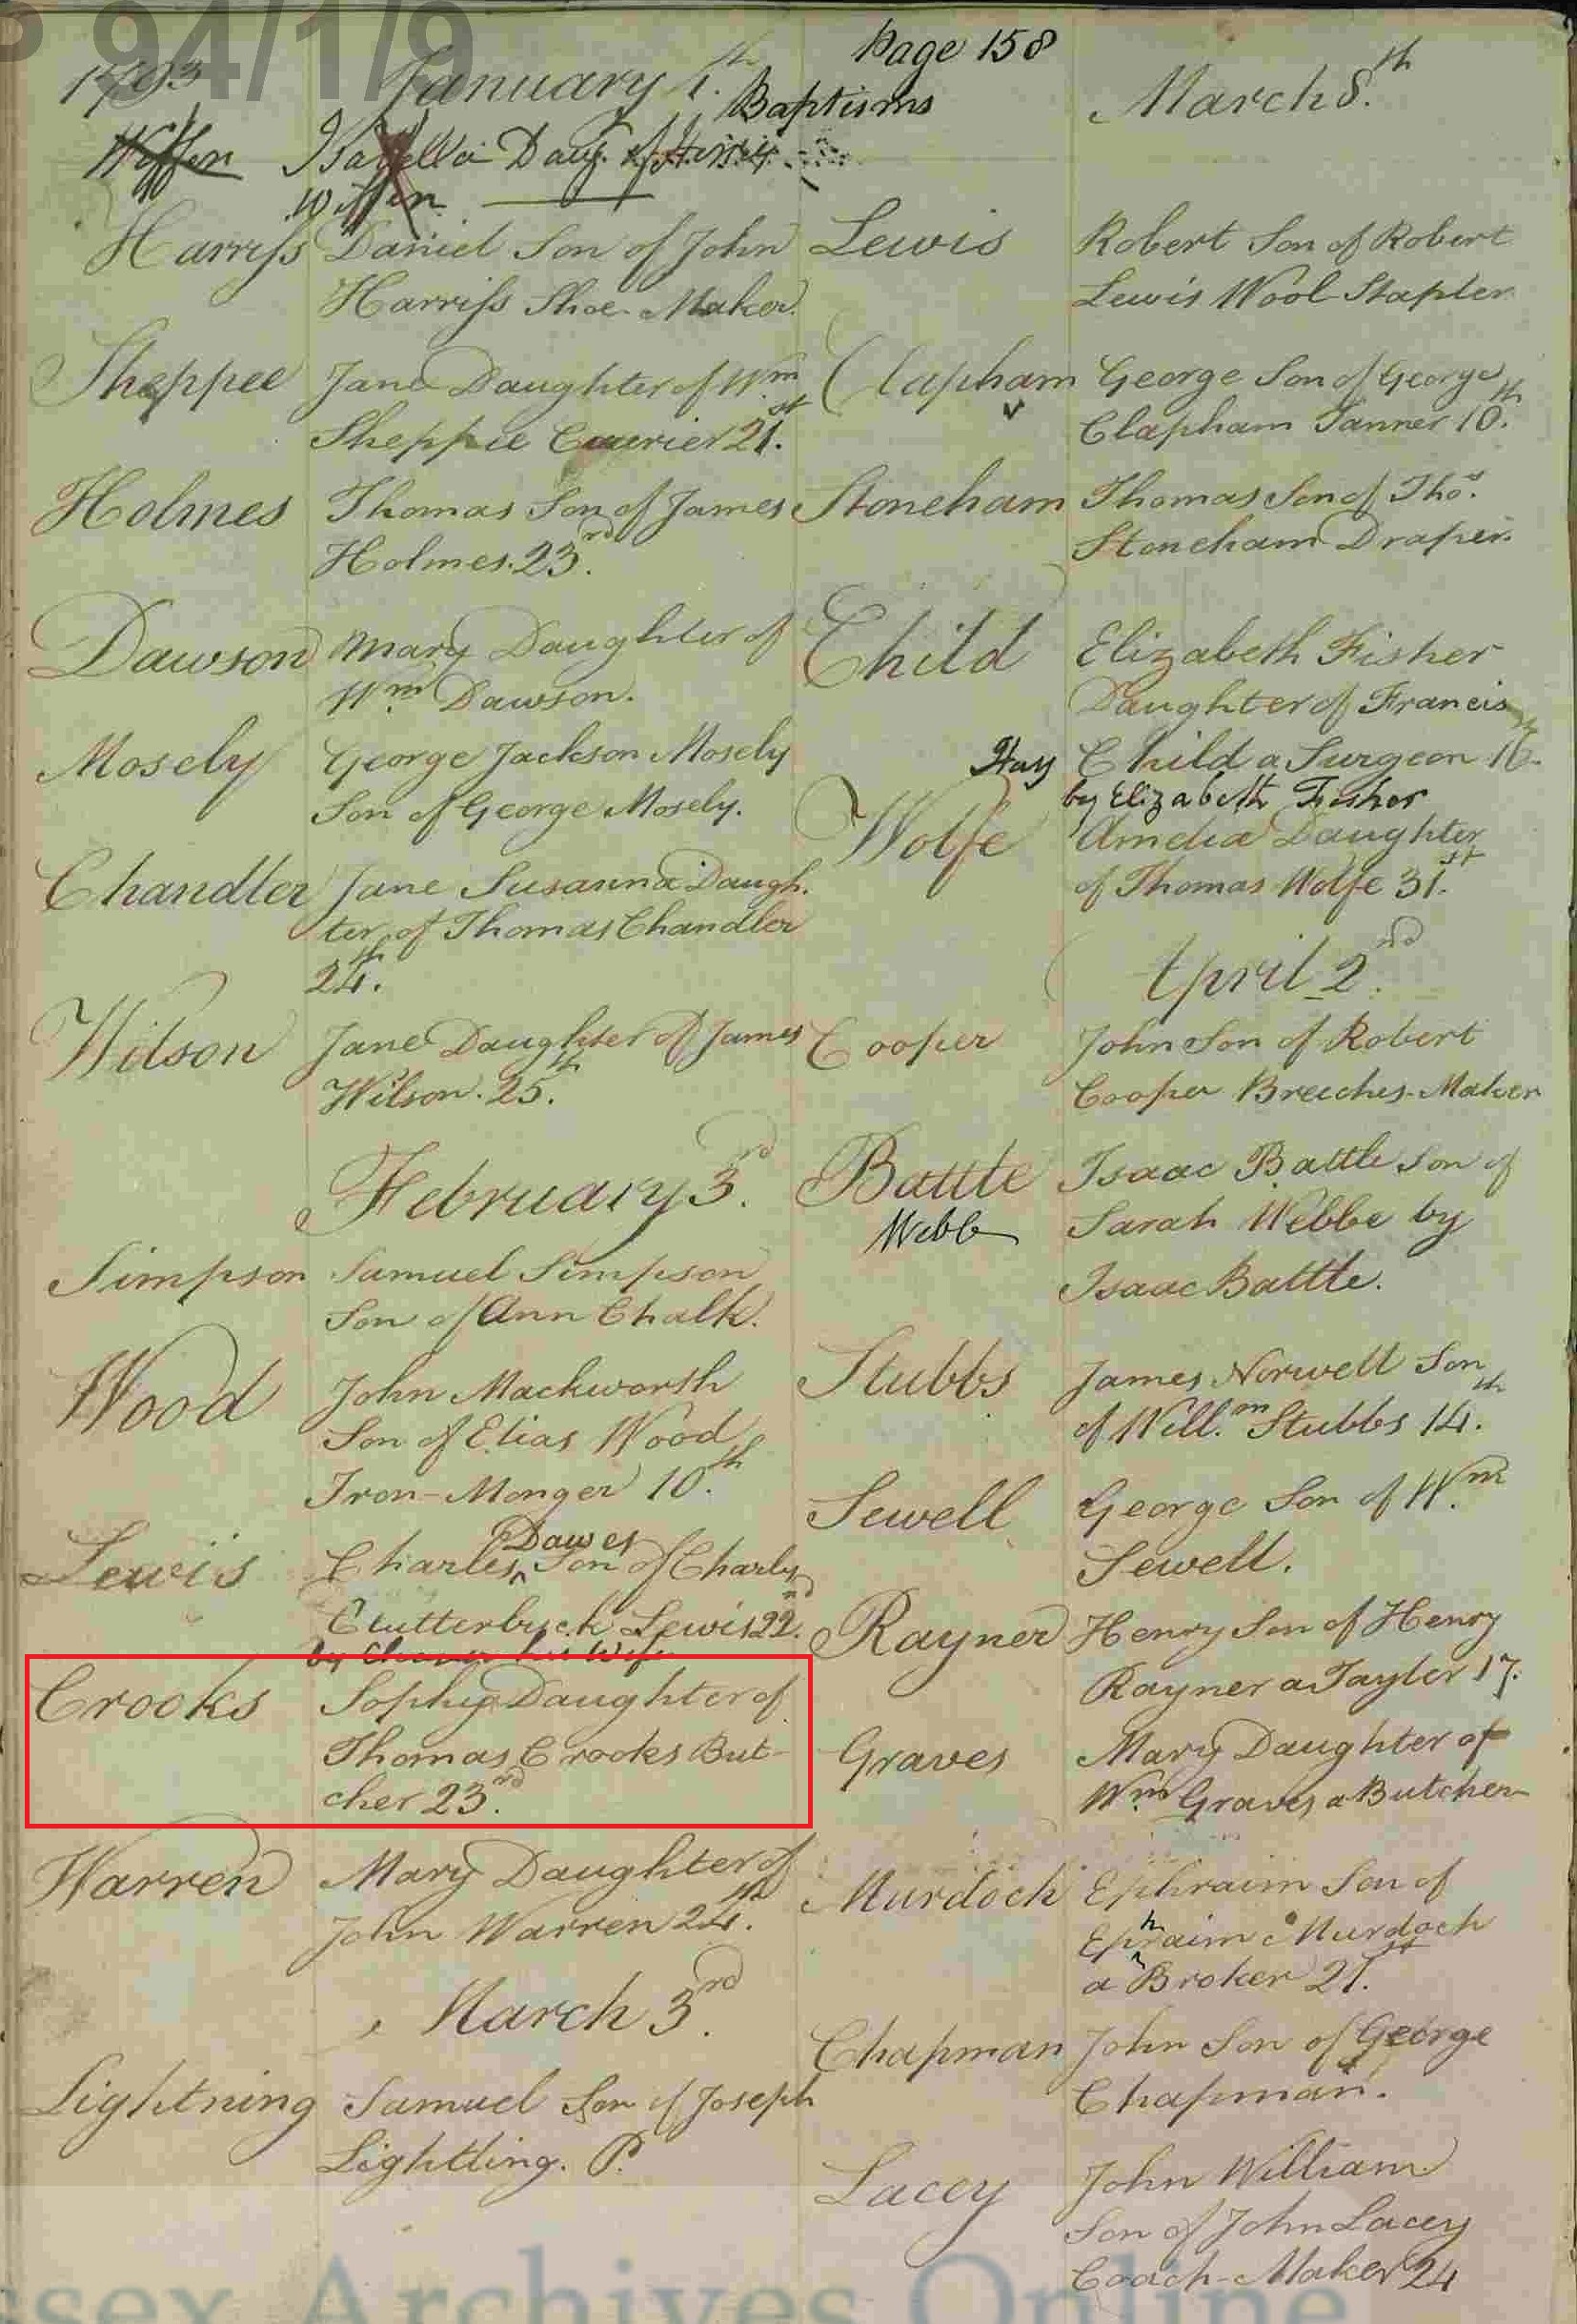 P 94/1/9
Page 158
1793
January 1.th
Baptisms
Wiffen
Isabella Daug. of
Wiffen
Harriss
Daniel Son of John
Harriss Shoe-Maker.
Sheppee
Jane Daughter of Wm
Sheppee Currier 21.st
Holmes
Thomas Son of James
Holmes. 23.rd
Dawson
Mary Daughter of
Wm Dawson.
Mosely
George Jackson Mosely
Son of George Mosely.
Chandler
Jane Susanna Daugh.
ter of Thomas Chandler
24.th
Wilson
Jane Daughter of James
Wilson. 25.th
February 3.rd
Simpson
Samuel Simpson
Son of Ann Chalk.
Wood
John Mackworth
Son of Elias Wood
Iron-Monger 10.th
Lewis
Dawes
Charles ^ Son of Charles
Clutterbuck Lewis 22.nd
by Eleanor his Wife
Crooks
Sophy Daughter of
Thomas Crooks But-
cher 23.rd
Warren
Mary Daughter of
John Warren 24.th
March 3.rd
Lightning
Samuel Son of Joseph
Lightling. P.
March 8.th
Lewis
Robert Son of Robert
Lewis Wool-Stapler
Clapham
George Son of George
Clapham Tanner 10.th
Stoneham
Thomas Son of Thos.
Stoneham Draper.
Child
Elizabeth Fisher
Daughter of Francis
Hay
Child a Surgeon 16.th
by Elizabeth Fisher
Wolfe
Amelia Daughter
of Thomas Wolfe 31.st
April 2.nd
Cooper
John Son of Robert
Cooper Breeches-Maker
Battle
Isaac Battle Son of
Webb
Sarah Webbe by
Isaac Battle.
Stubbs
James Norwell Son
of Will.m Stubbs 14.th
Sewell
George Son of Wm
Sewell.
Rayner
Henry Son of Henry
Rayner a Taylor 17.
Graves
Mary Daughter of
Wm Graves a Butcher
Murdock
Ephraim Son of
Ephraim Murdoch
a Broker 21.st
Chapman
John Son of George
Chapman.
Lacey
John William
Son of John Lacey
Coach-Maker 24
ssex Archives Online